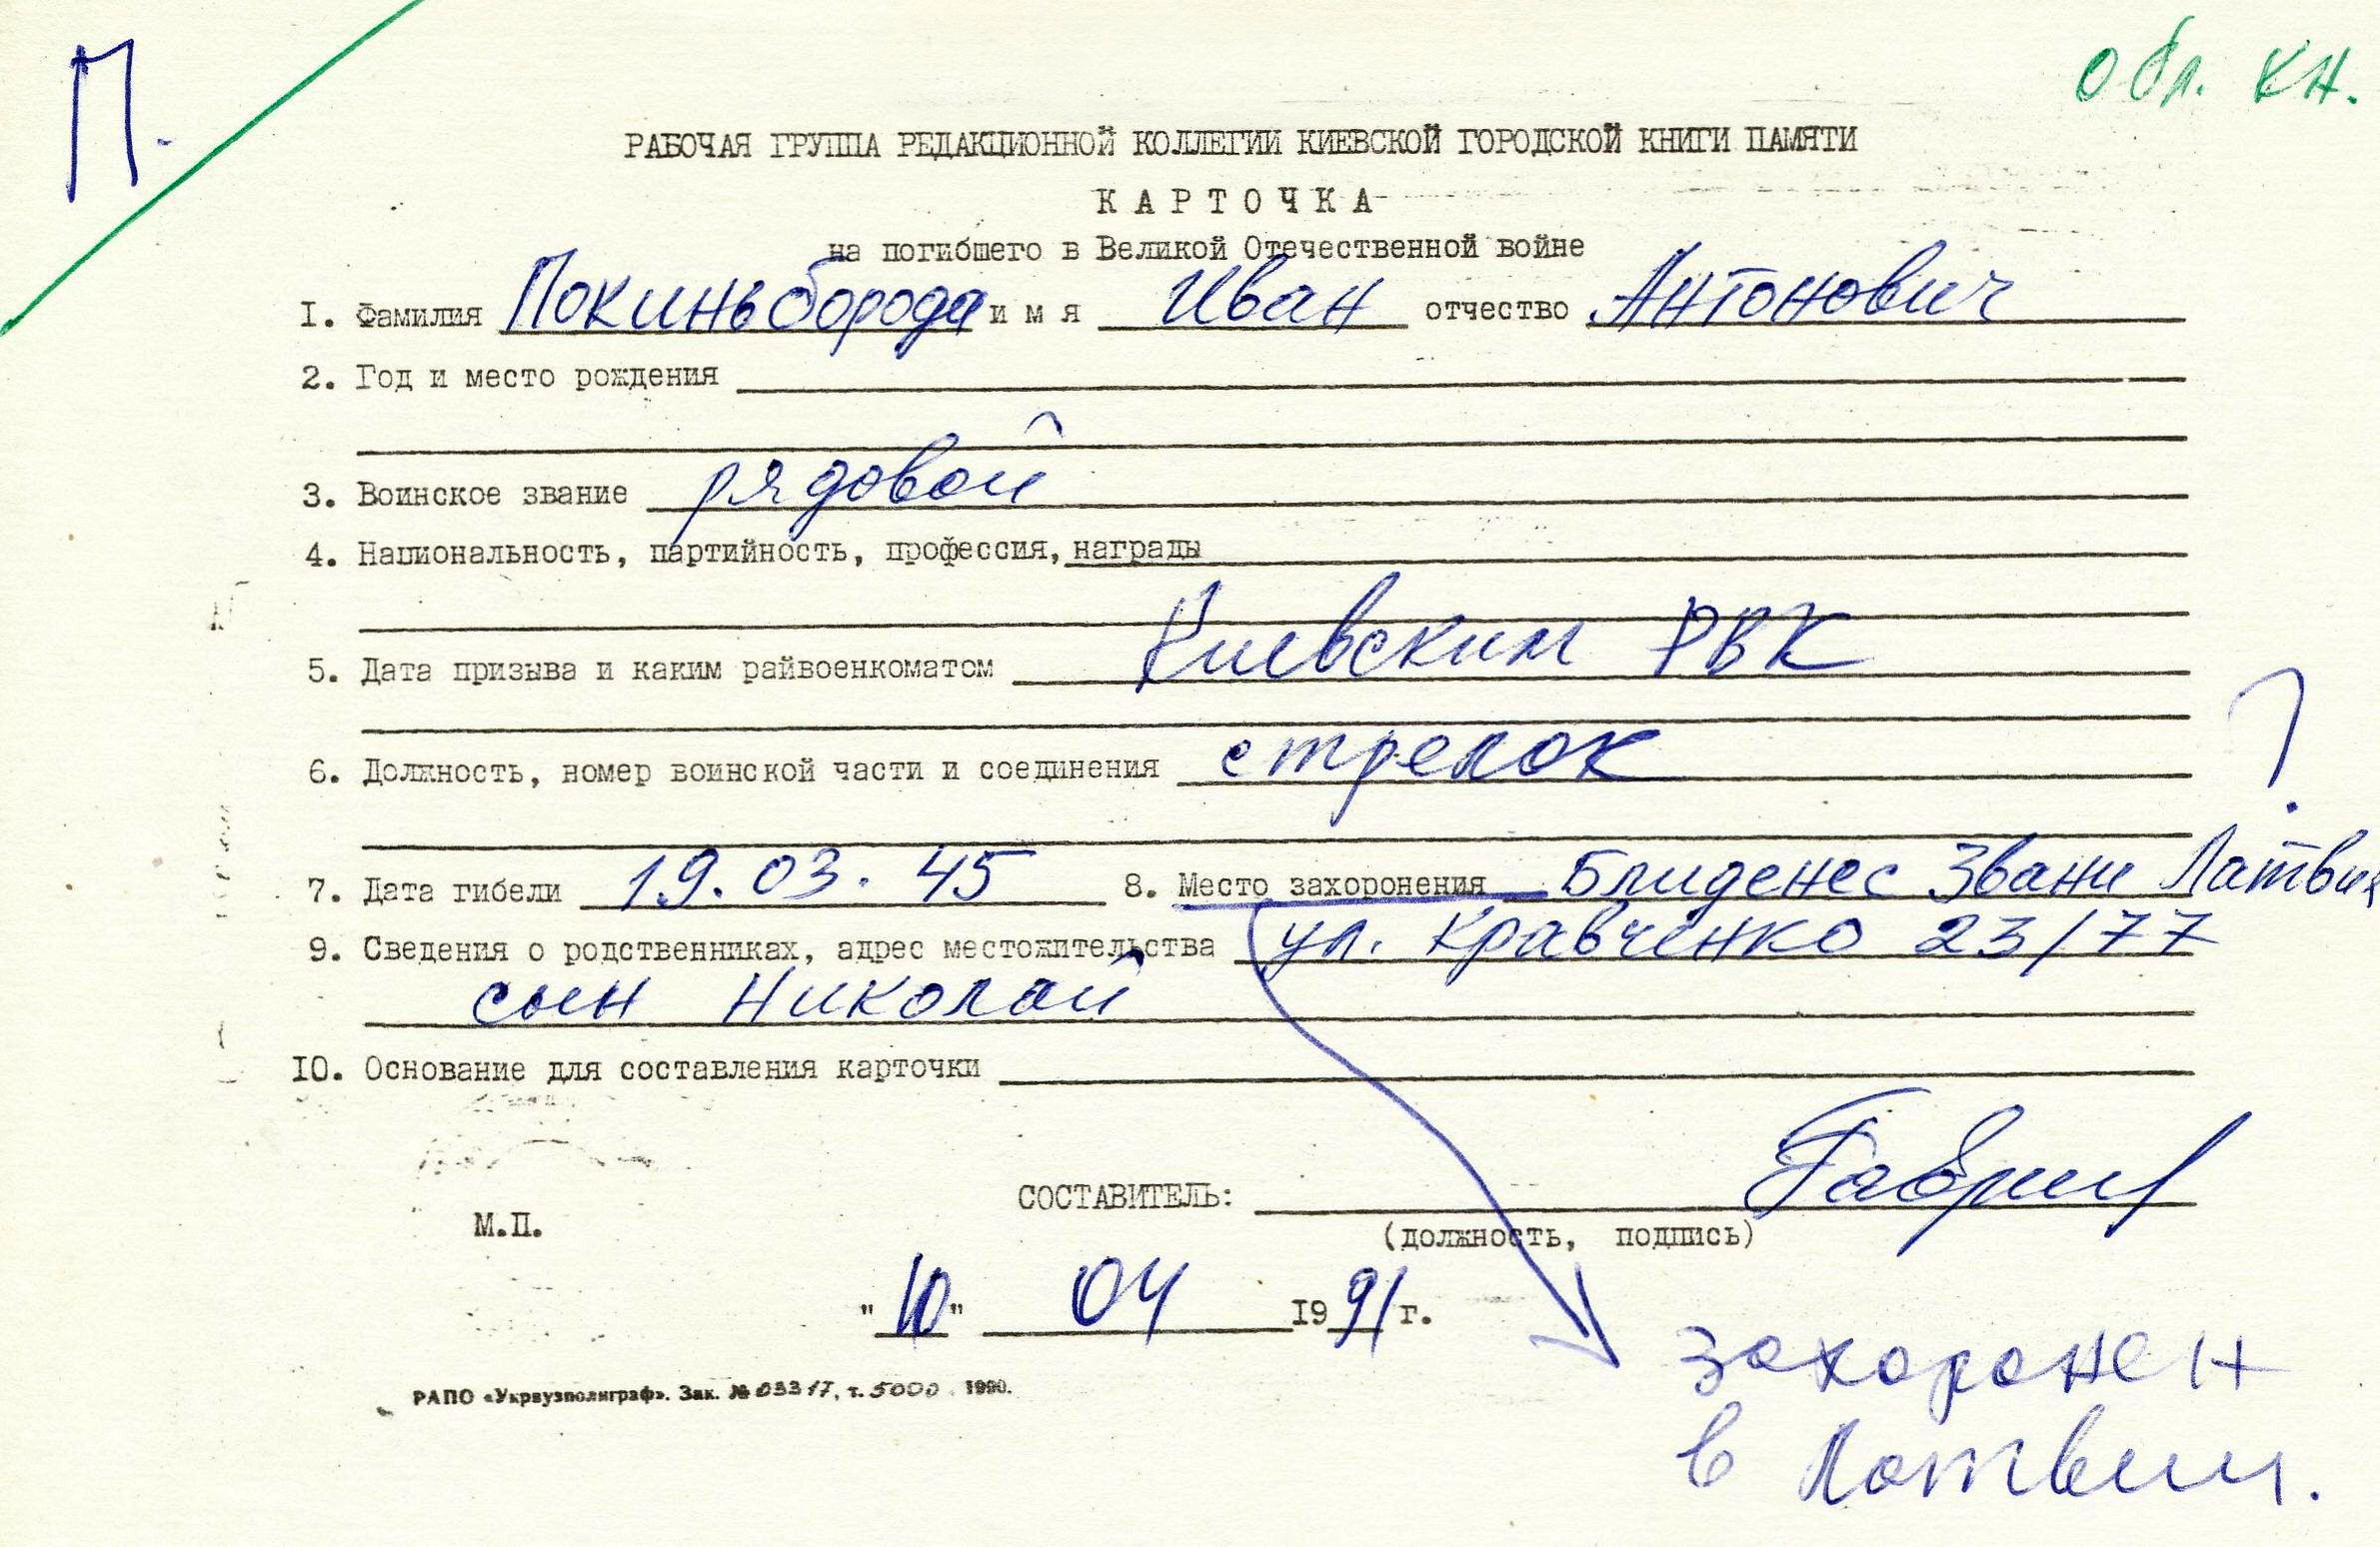 П.
обл. кн.
РАБОЧАЯ ГРУППА РЕДАКЦИОННОЙ КОЛЛЕГИИ КИЕВСКОЙ ГОРОДСКОЙ КНИГИ ПАМЯТИ
К А Р Т О Ч К А
на погибшего в Великой Отечественной войне
I. Фамилия Покиньборода и м я Иван отчество Антонович
2. Год и место рождения
3. Воинское звание рядовой
4. Национальность, партийность, профессия, награды
5. Дата призыва и каким райвоенкоматом Киевским РВК
6. Должность, номер воинской части и соединения стрелок
?
7. Дата гибели 19.03.45 8. Место захоронения Блиденес Звани Латвия
9. Сведения о родственниках, адрес местожительства ул. Кравченко 23/77
сын Николай
10. Основание для составления карточки
СОСТАВИТЕЛЬ:
М.П.
(должность, подпись)
"10" 04 1991 г.
захоронен
в Латвии.
РАПО «Укрвузполиграф». Зак. № 03317, т. 5000. 1990.